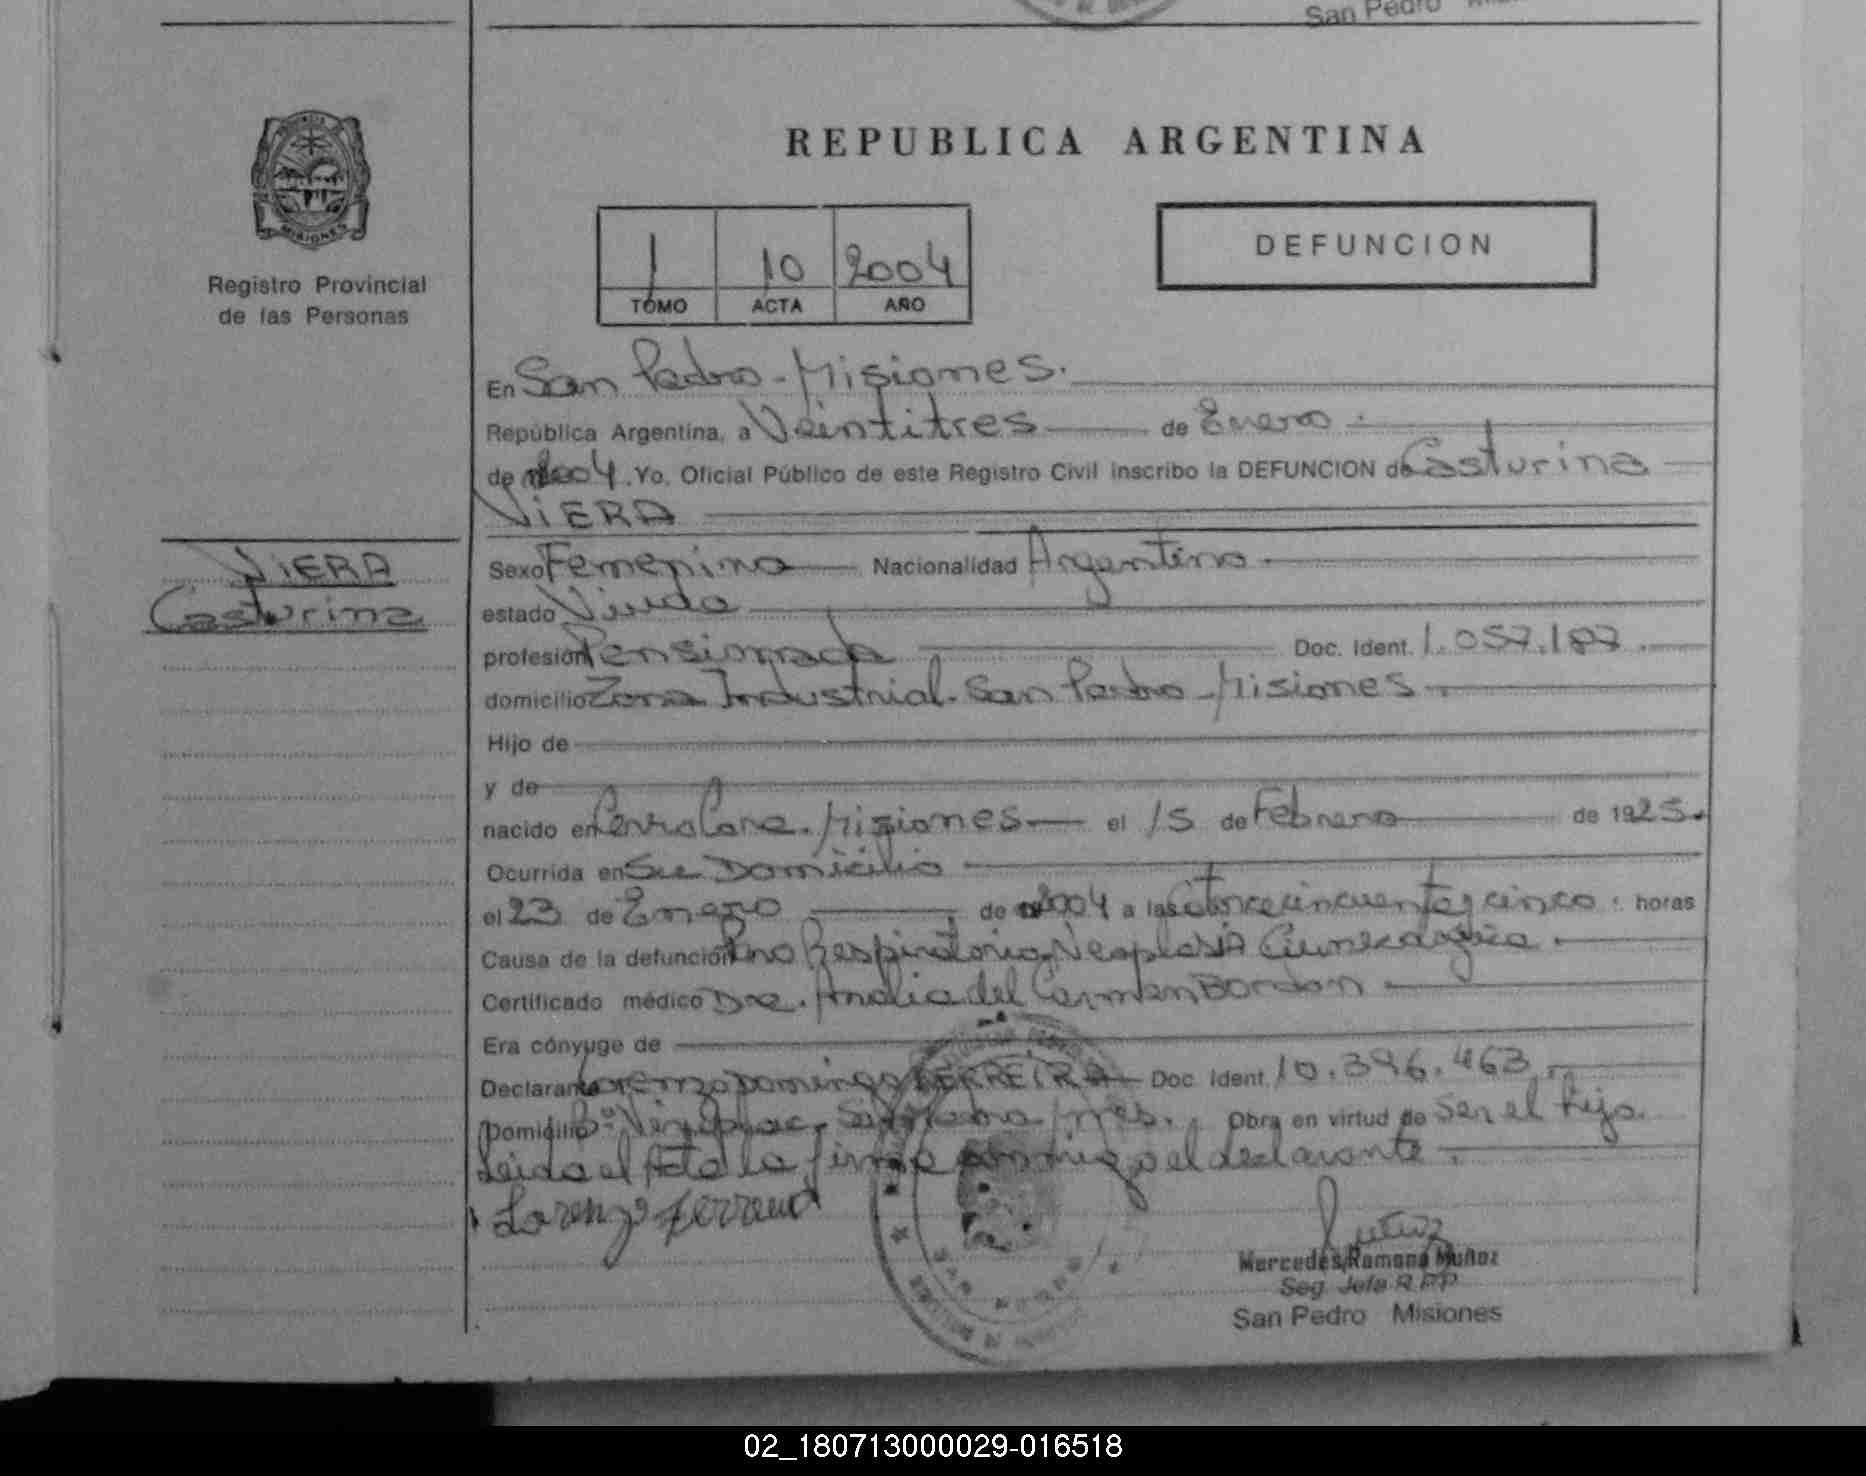 San Pedro
REPUBLICA ARGENTINA
PROVINCIA
MISIONES
Registro Provincial
de las Personas
1 10 2004
TOMO ACTA AÑO
DEFUNCION
En San Pedro - Misiones.
República Argentina, a Veintitres de Enero
de 2004. Yo, Oficial Público de este Registro Civil inscribo la DEFUNCION de Casturina
VIERA
VIERA
Casturina
Sexo Femenino Nacionalidad Argentina
estado Viuda
profesión Pensionada Doc. Ident. 1.057.187
domicilio Zona Industrial - San Pedro - Misiones
Hijo de
y de
nacido en Cerro Cora. Misiones el 15 de Febrero de 1925.
Ocurrida en Su Domicilio
el 23 de Enero de 2004 a las catorce cincuenta y cinco horas
Causa de la defunción Paro Respiratorio Neoplasia
Certificado médico Dra. Analia del Carmen Bordon
Era cónyuge de
Declarante Lorenzo Domingo FERREIRA Doc. Ident. 10.396.463
Domicilio Bº Obra en virtud de Ser el hijo.
Leida el Acta la firma conmigo el declarante.
Lorenzo Ferreira
Mercedes Ramona Muñoz
Seg. Jefa R.P.P
San Pedro Misiones
02_180713000029-016518